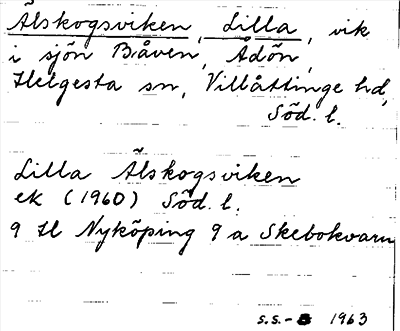 Älskogsviken, Lilla, vik
i sjön Båven, Ådön,
Helgesta sn, Villåttinge hd,
Söd. l.
Lilla Älskogsviken
ek (1960) Söd. l.
9 H Nyköping 9 a Skebokvarn
s.s.- 1963